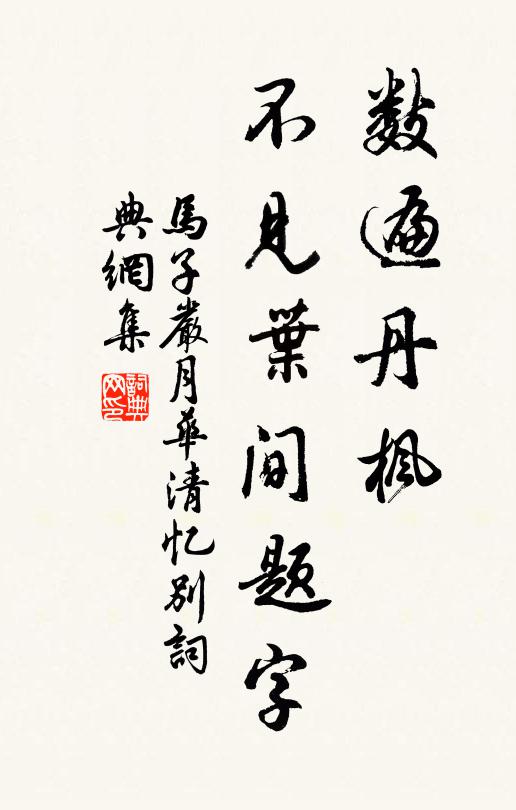 数遍丹枫
不見葉間題字
馬子嚴月華清忆别詞
典網集
詞典网印